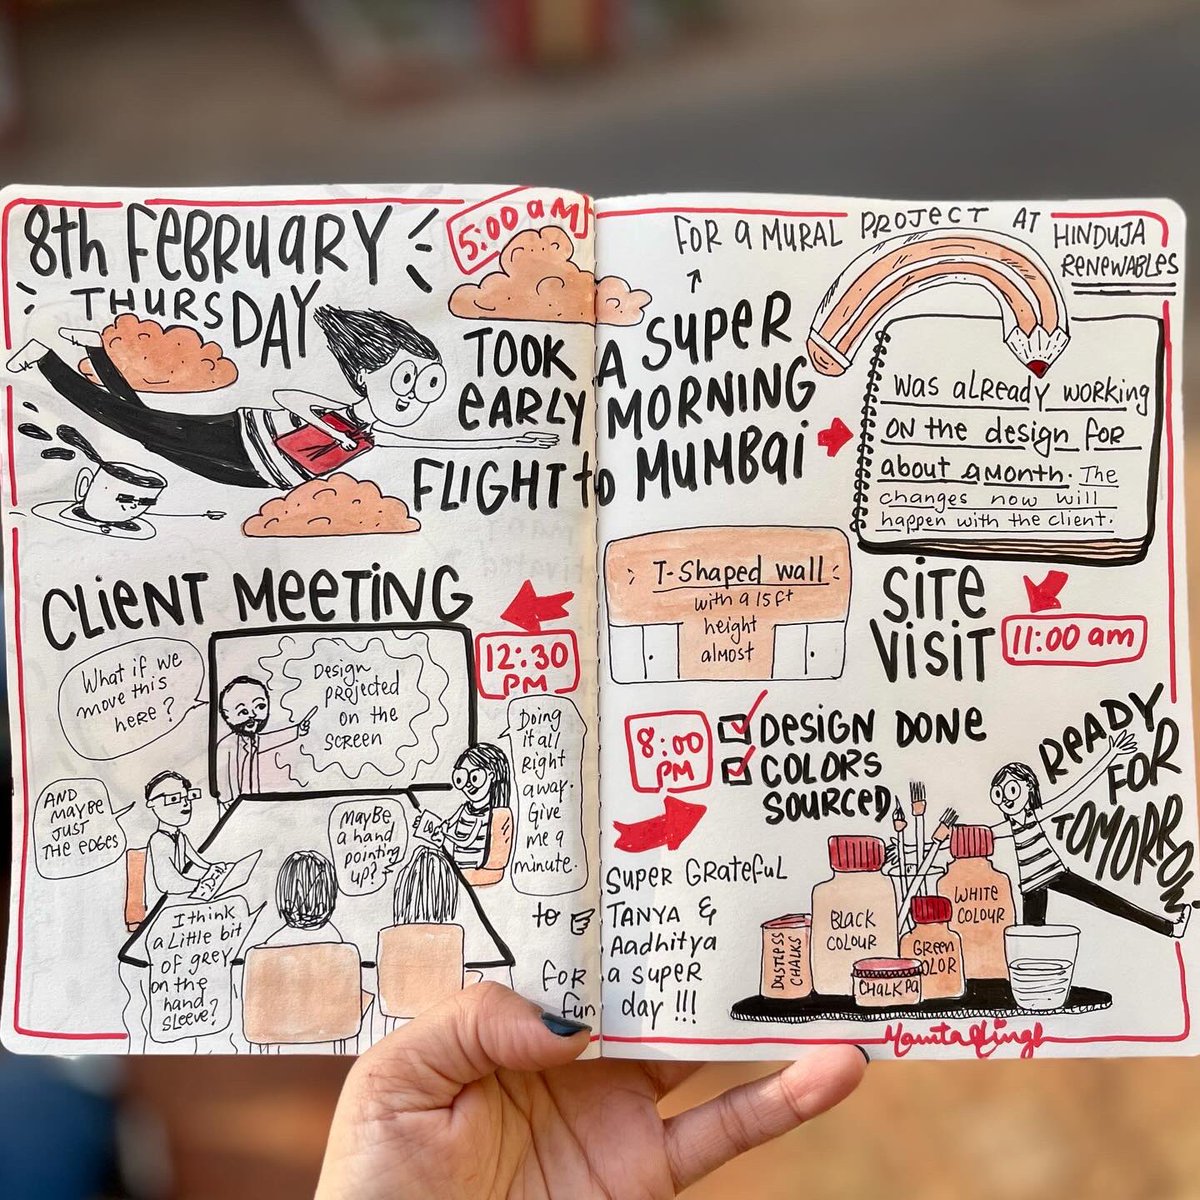 8th FEBRUARY
THURSDAY
5:00 am
TOOK
EARLY
FLIGHT to
A SUPER
MORNING
MUMBAI
FOR a MURAL PROJECT AT HINDUJA
RENEWABLES
was already working
ON the design for
about a month. The
changes now will
happen with the client.
SITE
VISIT
11:00 am
T-Shaped wall
with a 15 ft
height
almost
CLIENT MEETING
12:30
PM
What if we
move this
here?
Design
projected
on the
SCREEN
AND
MAYBE
JUST
THE EDGES
MAYBE
a hand
pointing
up?
Doing
it all
Right
away.
Give
me a
minute.
I think
a Little bit
OF grey
on the
hand
sleeve?
8:00
PM
DESIGN DONE
COLORS
SOURCED
READY
FOR
TOMORROW
SUPER GRATEFUL
to TANYA &
Aadhitya
for a super
fun day !!!
DUSTLESS
CHALKS
BLACK
COLOUR
WHITE
COLOUR
GREEN
COLOR
CHALKPA